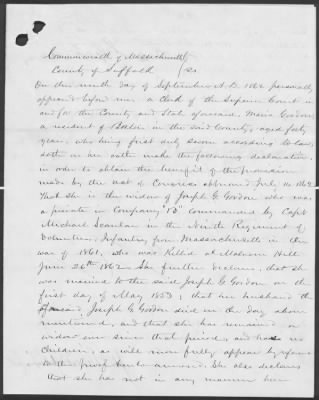 Commonwealth of Massachusetts
County of Suffolk } ss
On this ninth day of September A.D. 1862 personally
appeared before me, a Clerk of the Superior Court in
and for the County and State aforesaid, Maria Gordon
a resident of Boston in the said County, aged forty
years, who being first duly sworn according to law,
doth on her oath make the following declaration,
in order to obtain the benefit of the provision
made by the act of Congress approved July 14 1862
That she is the widow of Joseph G. Gordon who was
a private in Company "B" commanded by Capt
Michael Scanlan in the Ninth Regiment of
Volunteer Infantry from Massachusetts in the
war of 1861, who was killed at Malvern Hill
June 26th 1862 She further declares, that she
was married to the said Joseph G. Gordon on the
first day of May 1853; that her husband the
aforesaid, Joseph G. Gordon died on the day above
mentioned, and that she has remained a
widow ever since that period, and has no
Children, as will more fully appear by reference
to the proof hereto annexed. She also declares
that she has not in any manner been